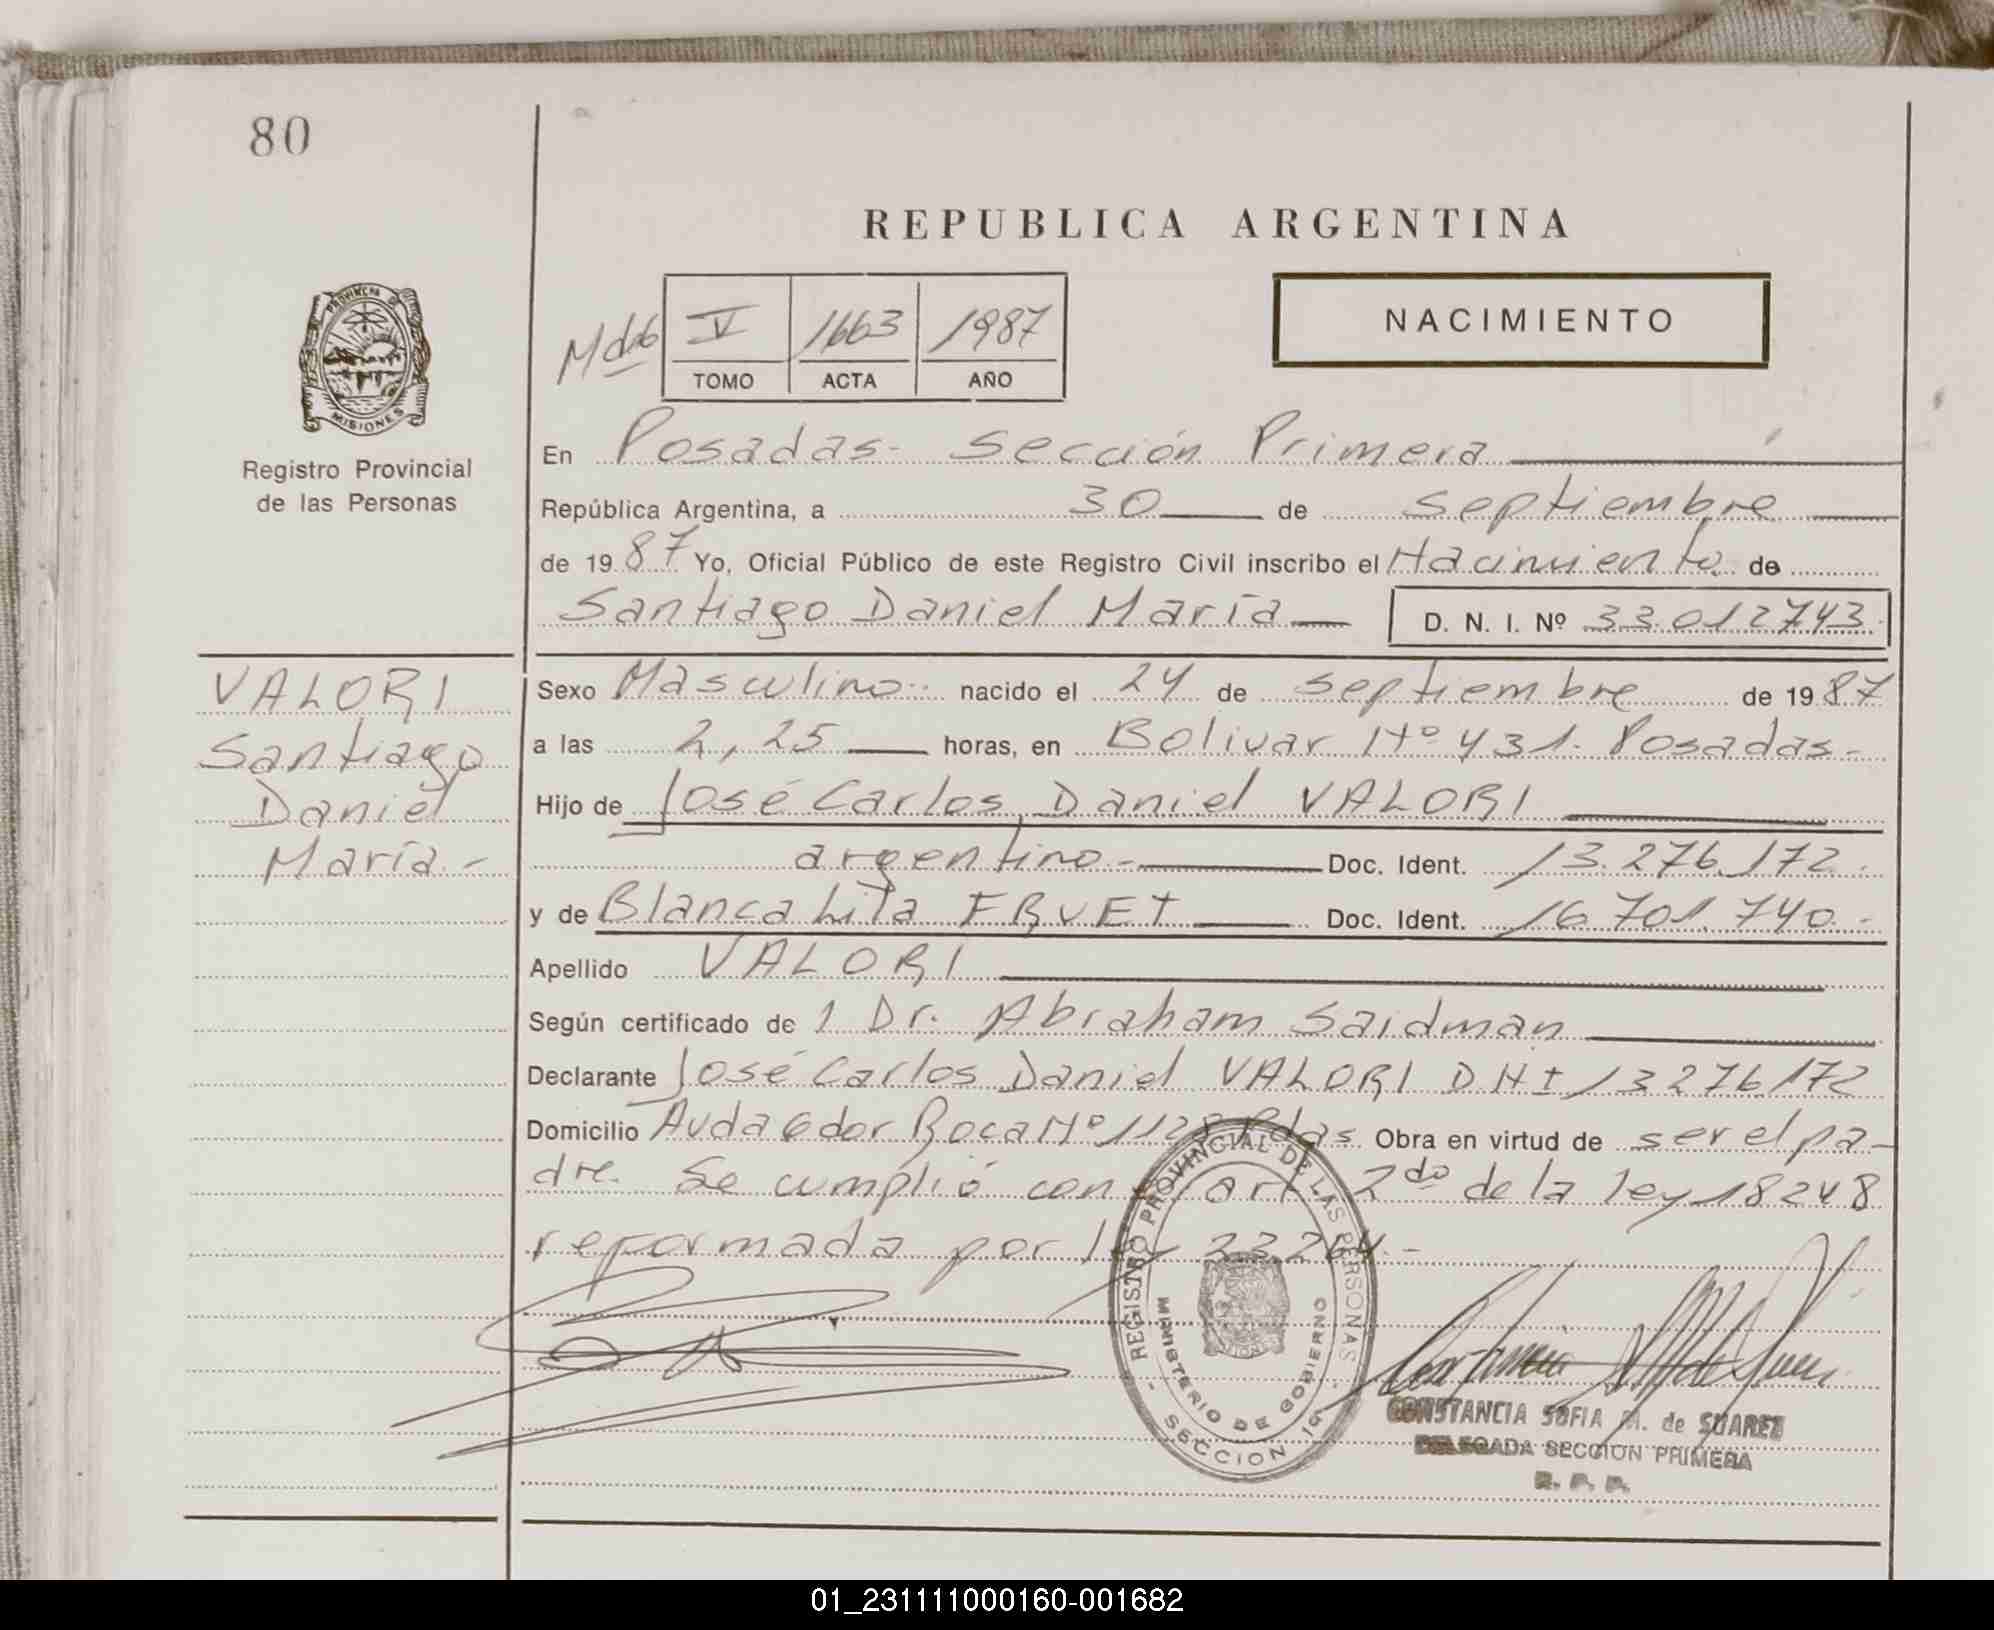 80
REPUBLICA ARGENTINA
PROVINCIA DE
MISIONES
Registro Provincial
de las Personas
V 1663 1987
TOMO ACTA AÑO
NACIMIENTO
En Posadas - Sección Primera
República Argentina, a 30 de septiembre
de 1987 Yo, Oficial Público de este Registro Civil inscribo el Nacimiento de
Santiago Daniel María D. N. I. Nº 33.012743.
VALORI
Santiago
Daniel
María.-
Sexo Masculino.. nacido el 24 de septiembre de 1987
a las 2,25 horas, en Bolivar Nº 431. Posadas-
Hijo de José Carlos Daniel VALORI
argentino.- Doc. Ident. 13.276.172.
y de Blanca Lita ERVET Doc. Ident. 16.701.740.-
Apellido VALORI
Según certificado de 1 Dr. Abraham Saidman
Declarante José Carlos Daniel VALORI DNI 13276172
Domicilio Avda Gdor Roca Nº Pdas. Obra en virtud de ser el pa-
dre. Se cumplió con art 2do de la ley 18248
reformada por ley 23264.-
REGISTRO PROVINCIAL DE LAS PERSONAS
MINISTERIO DE GOBIERNO
- SECCION 1ª -
CONSTANCIA SOFIA M. de SUAREZ
DELEGADA SECCION PRIMERA
R. P. P.
01_231111000160-001682